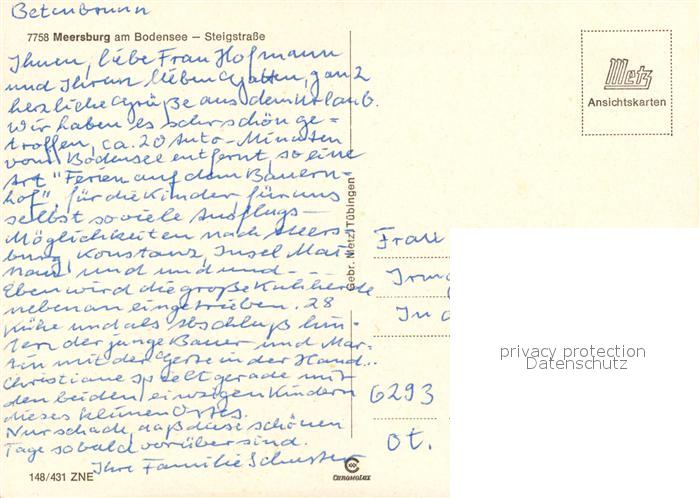 Betenbrunn
7758 Meersburg am Bodensee – Steigstraße
Ihnen, liebe Frau Hofmann
und Ihrem lieben Gatten, ganz
herzliche Grüße aus dem Urlaub.
Wir haben es sehr schön ge=
troffen, ca. 20 Auto-Minuten
vom Bodensee entfernt, so eine
Art "Ferien auf dem Bauern-
hof", für die Kinder, für uns
selbst so viele Ausflugs-
Möglichkeiten nach Meers-
burg, Konstanz, Insel Mai-
nau, und und und - - -
Eben wird die große Kuhherde
nebenan eingetrieben. 28
Kühe und als Abschluß hin-
tern der junge Bauer und Mar-
tin mit der Gerte in der Hand..
Christiane spielt gerade mit
den beiden einzigen Kindern
dieses kleinen Ortes.
Nur schade, daß diese schönen
Tage so bald vorüber sind.
Ihre Familie Schuster
148/431 ZNE
Gebr. Metz Tübingen
CHROMOLUX
Metz
Ansichtskarten
Frau
Irm
In d
6293
Ot.
privacy protection
Datenschutz